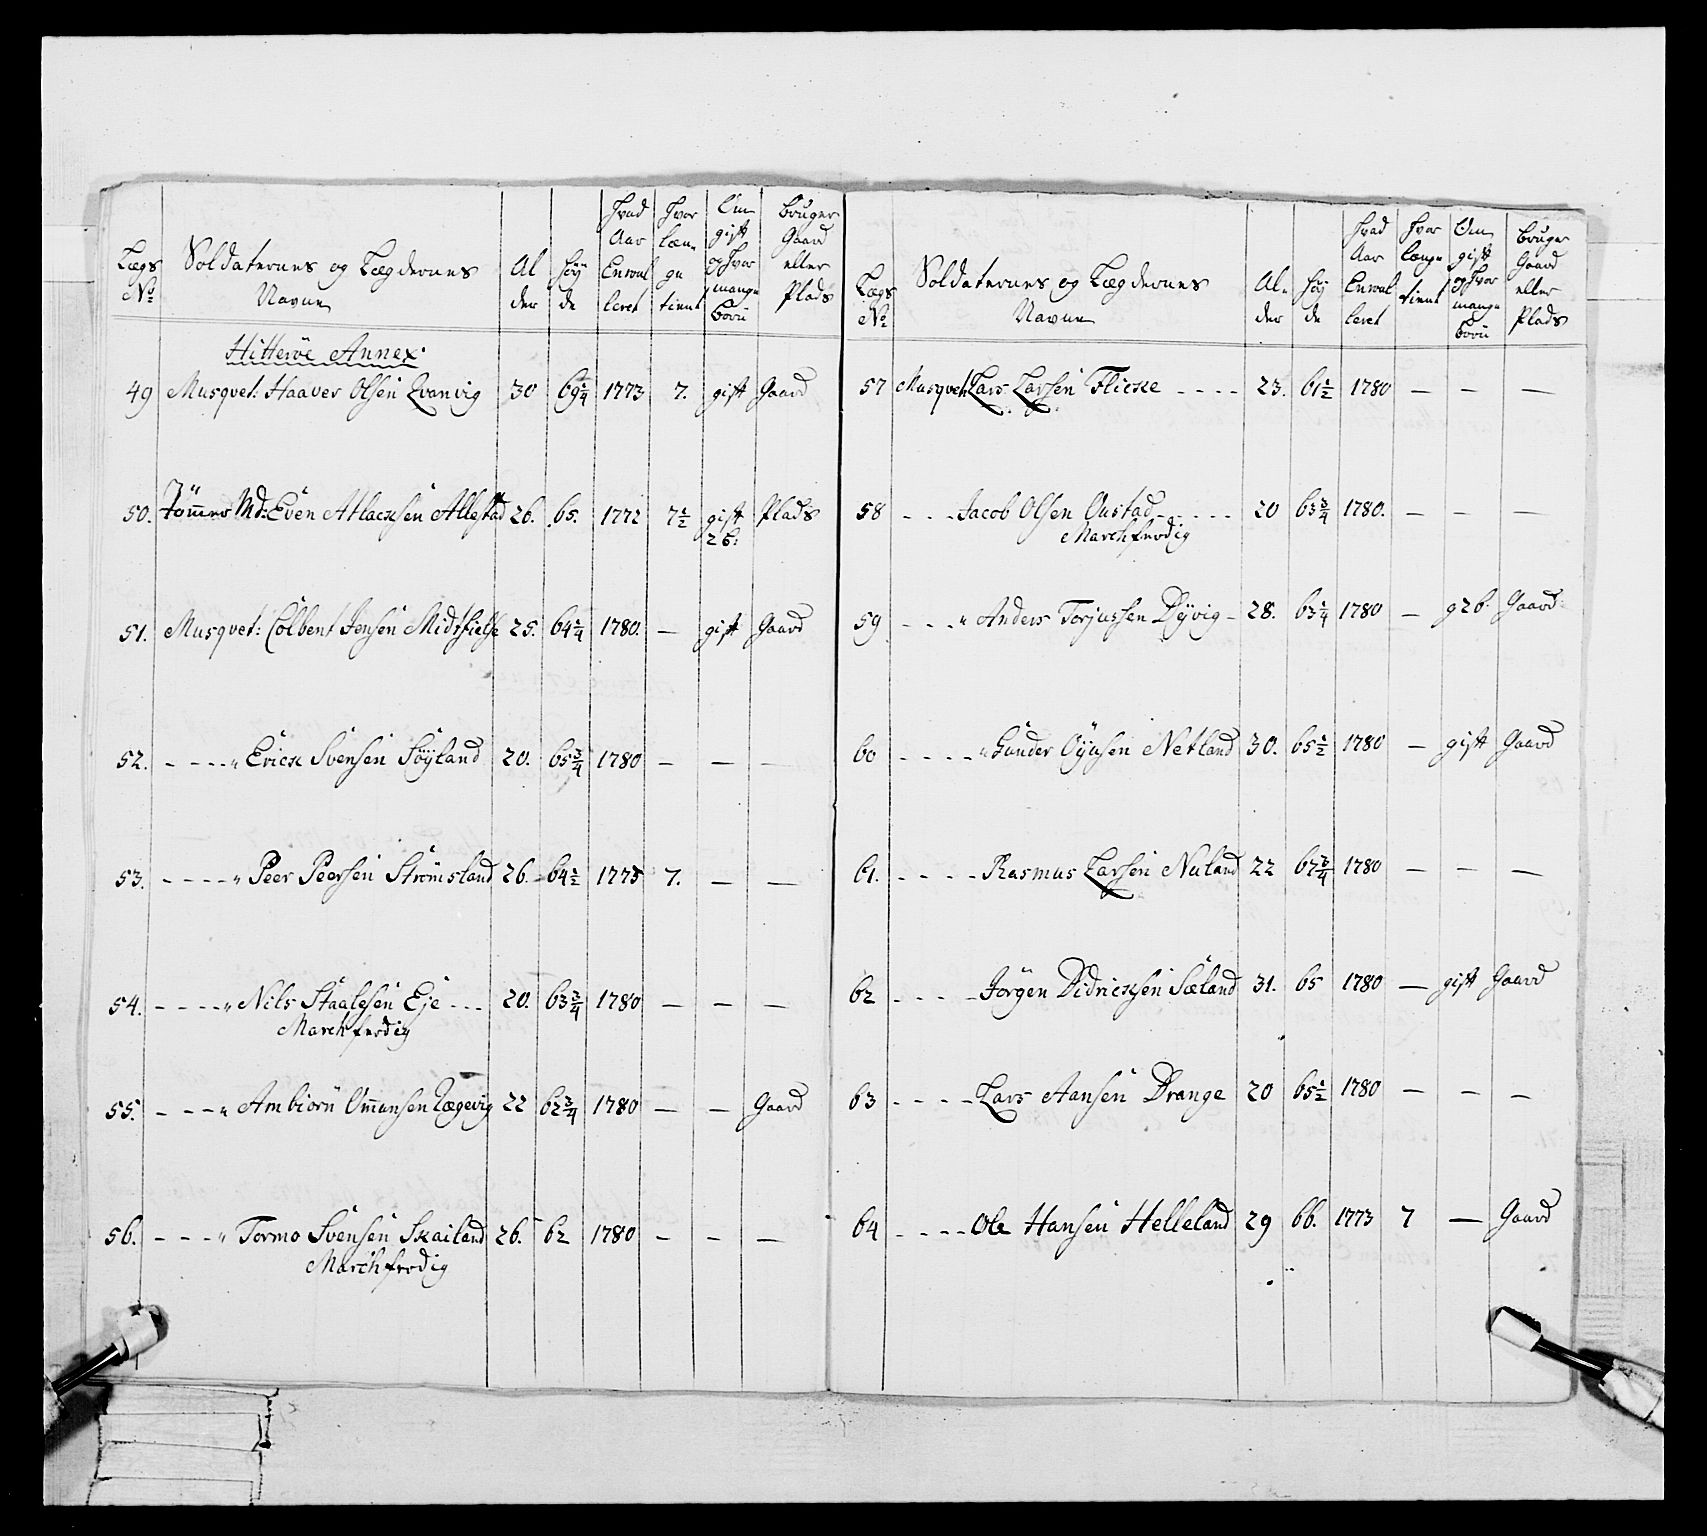 Lægs No | Soldaternes og Lægdernes Navne | Al der | Höy de | Hvad Aar Enroul leret | Hvor læn- ge tient | Om gift og hvor mange Börn | bruger Gaard eller Plads
Hitteröe Annex
49 Musqvet: Haaver Olsen Qvanvig 30 69 1/4 1773 7. gift Gaard
50. Tömmer Md: Even Atlacksen Allestad 26. 65. 1772 7 1/2 gift 2 b: Plads
51. Musqvet: Colbent Jensen Midtfielse 25. 64 1/4 1780. — gift Gaard
52. - - - - " Erick Svensen Söyland 20. 65 3/4 1780 — — —
53. - - - - - " Peer Peersen Strömsland 26. 64 1/2 1773 7. — —
54. - - - - - " Nils Staalesen Eje - - - 20. 63 3/4 1780 — — —
Marchferdig
55. - - - - " Ambiorn Omansen Lægevig 22 62 3/4 1780 — — Gaard
56. - - - - " Tormo Svensen Skailand 26. 62 1780 — — —
Marchferdig
Lægs No | Soldaternes og Lægdernes Navne | Al- der | Höy de | Hvad Aar Enroul leret | Hvor længe tient | Om gift og hvor mange Börn | bruger Gaard eller Plads
57 Musqvet: Lars Larsen Flicke - - - - 23. 61 1/2 1780 — — —
58 - - - - Jacob Olsen Oustad - - - - - 20 63 3/4 1780. — — —
Marchferdig
59 - - - - " Anders Torjussen Dÿvig - 28. 63 1/4 1780 — g 2 b. Gaard
60 - - - - - " Gunder Oÿnsen Netland 30. 65 1/2 1780 — gift Gaard
61. - - - - - Rasmus Larsen Nuland 22 67 3/4 1780 — — —
62 - - - - - Jörgen Didricksen Sæland 31. 65 1780 — gift Gaard
63 - - - - - Lars Aansen Drange 20 65 1/2 1780 — — —
64 - - - - Ole Hansen Helleland 29 66. 1773 7 — Gaard